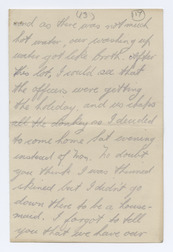 (13) 17
and as there was not much
hot water, our washing up
water got like broth. After
this lot, I could see that
the officers were getting
the holiday, and us chaps
all the donkey as I decided
to come home Sat evening
instead of Mon. No doubt
you think I was [thinned]
but I didn't go
down there to be a house-
maid. I forgot to tell
you that we have over